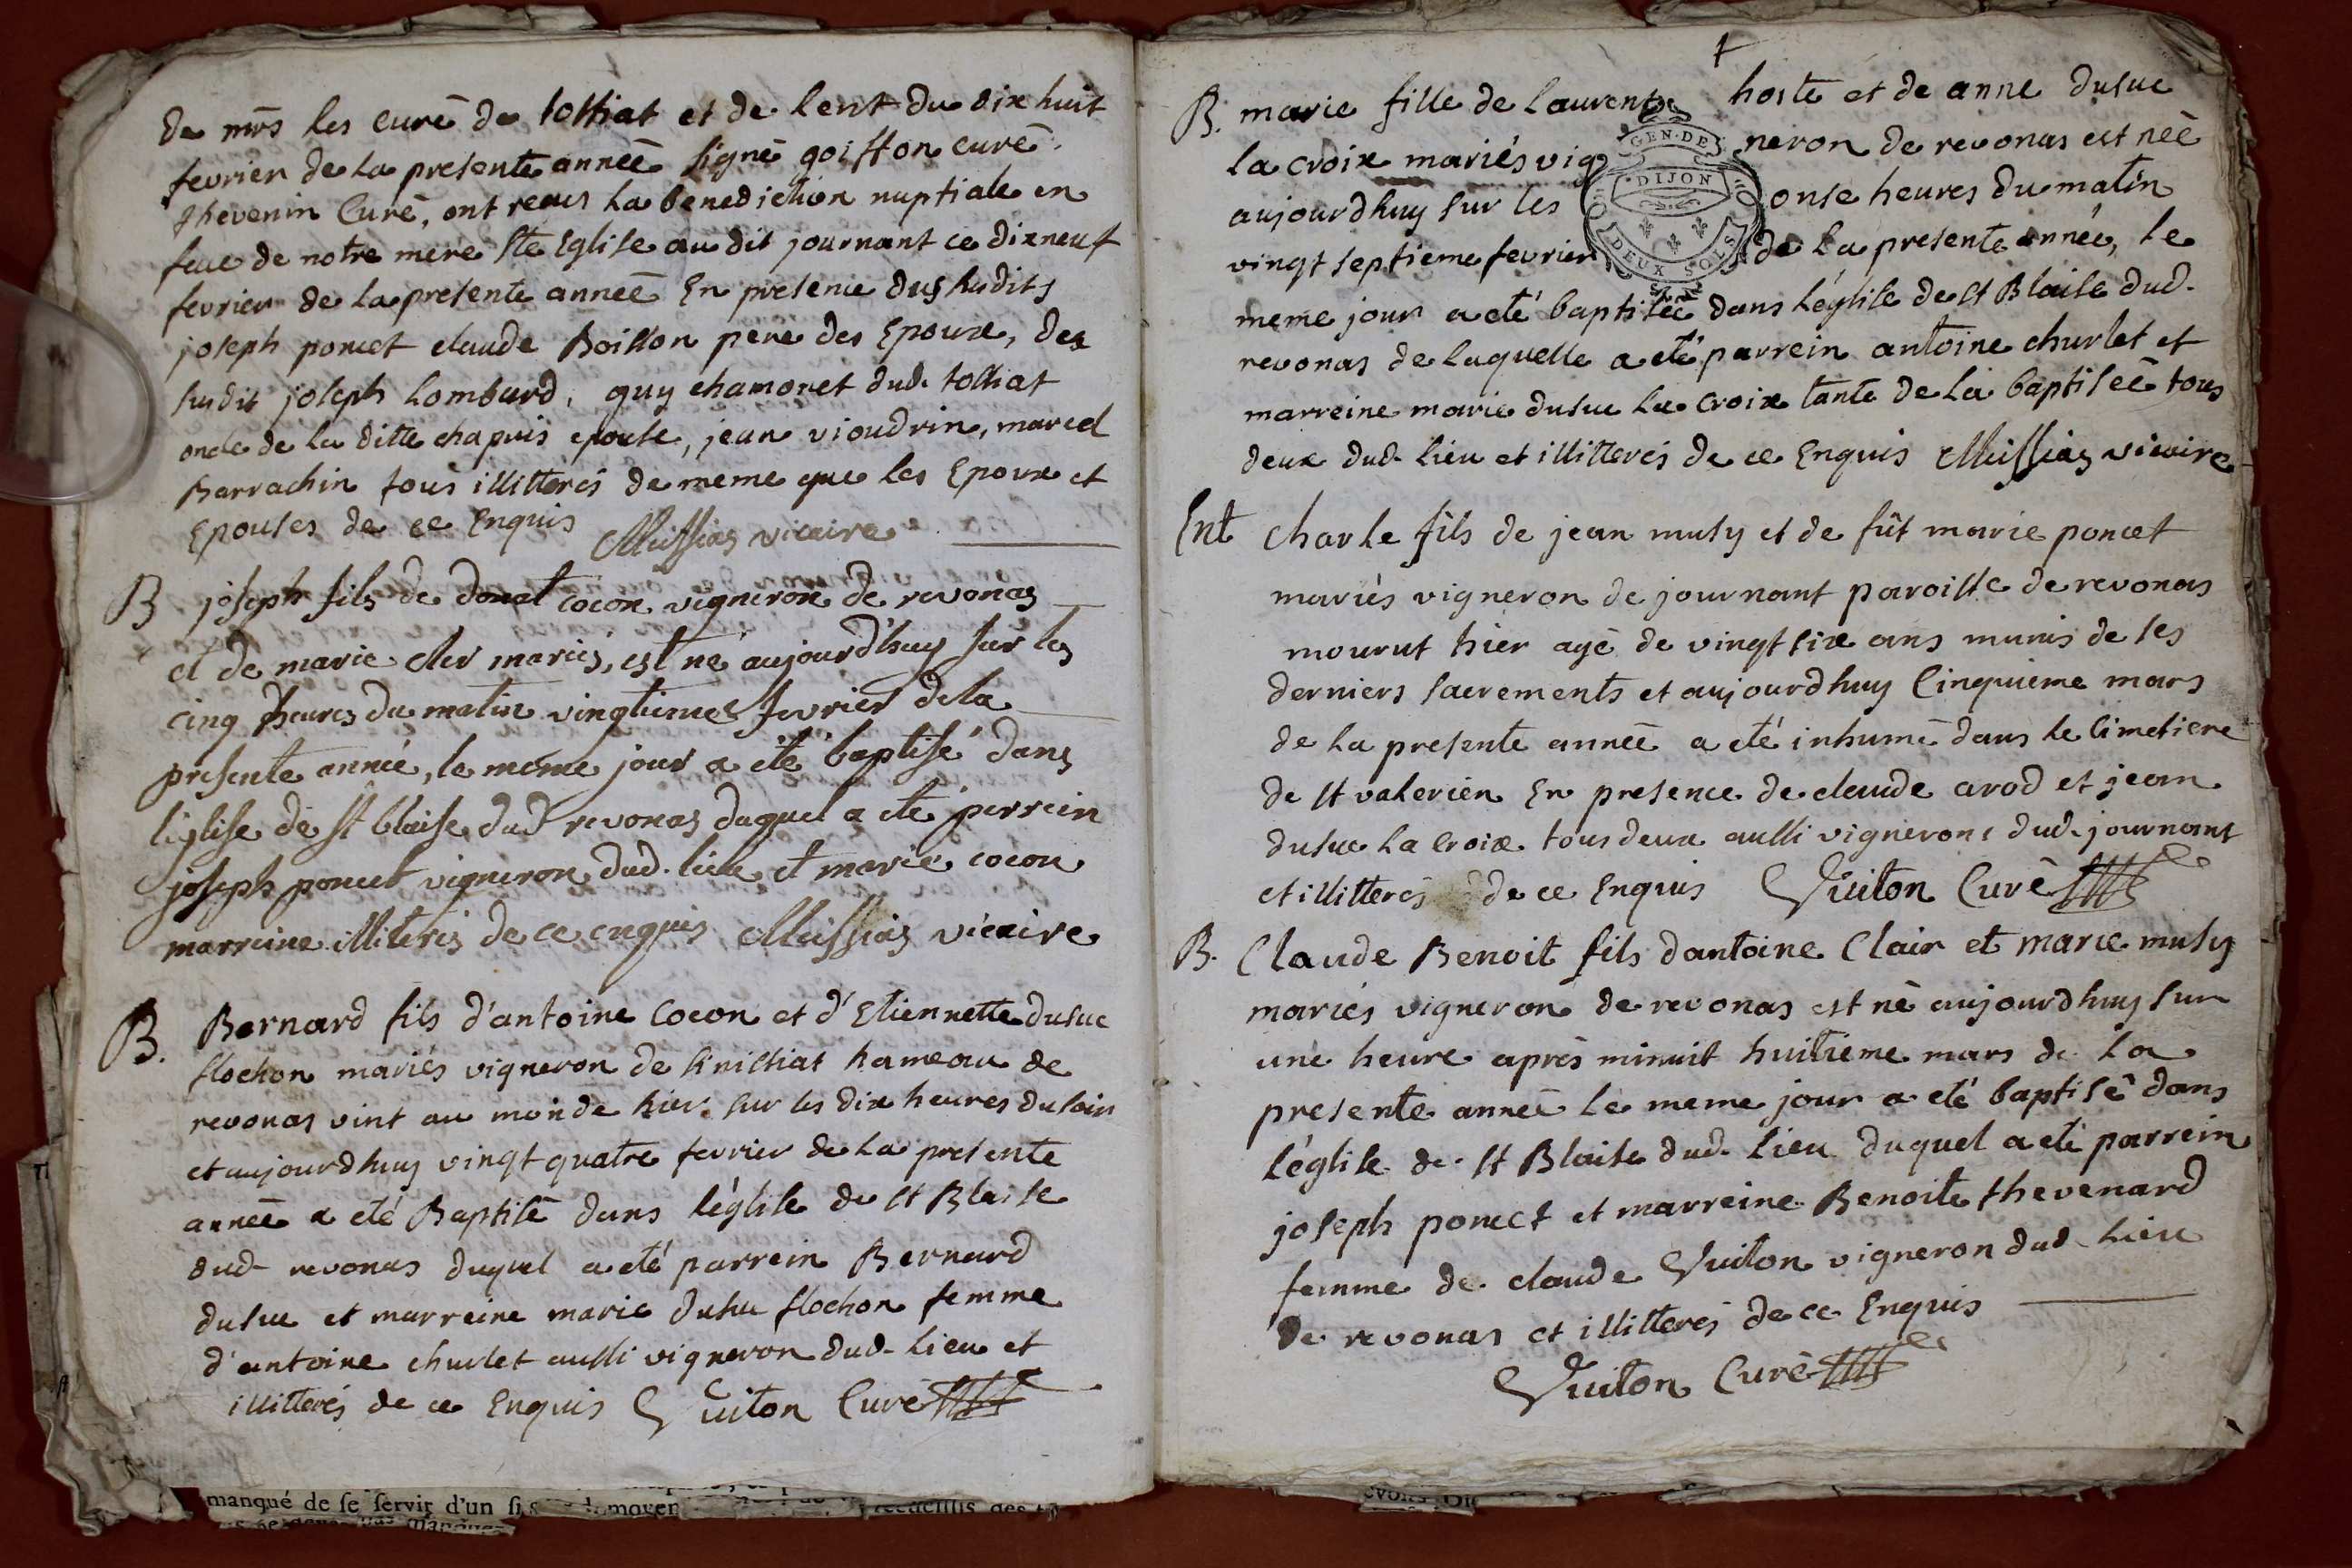 de mrs les curé de tossiat et de lent du dix huit
fevrier de la presente anneé signé goiffon curé.
thevenin Curé, ont reçus la benediction nuptiale en
face de notre mere Ste Eglise au dit journant ce dixneuf
fevrier de la presente anneé En presence dus susdits
joseph poncet claude Boillon pere des Epoux, des
susdit joseph Lombard, guy chamonet dud. tossiat
oncle de la ditte chapuis epouse, jean vioudrin, marcel
Barrachin tous illitterés de meme que les Epoux et
Epouses de ce Enquis Meissias vicaire
B joseph fils de donat cocon vigneron de revonas
et de marie cler mariés, est né aujourd'huy sur les
cinq heures du matin vingtieme fevrier dela
presente année, le méme jour a été baptisé dans
l'église de st blaise dud revonas duquel a ete perrein
joseph poncet vigneron dud. lieu et marie cocon
marreine illiterés de ce enquis Meissias vicaire
B. Bernard fils d'antoine Cocon et d'Etiennette dusuc
flochon mariés vigneron de senissiat hameau de
revonas vint au monde hier sur les dix heures du soir
et aujourdhuy vingt quatre fevrier de la presente
anneé a eté Baptisé dans l'église de st Blaise
dud revonas duquel a eté parrein Bernard
dusuc et marreine marie dusuc flochon femme
d'antoine churlet aussi vigneron dud. lieu et
illitterés de ce Enquis Vuiton Curé
B. marie fille de Laurent hoste et de anne dusuc
la croix mariés vigneron de revonas est neé
GEN. DE DIJON
DEUX SOLS
aujourdhuy sur les onse heures du matin
vingt septieme fevrier de la presente anneé, le
meme jour a eté baptiseé dans l'église de st Blaise dud.
revonas de laquelle a eté parrein antoine churlet et
marreine marie dusuc la croix tante de la baptiseé tous
deux dud lieu et illitterés de ce Enquis Meissias vicaire
Ent Charle fils de jean musy et de fût marie poncet
mariés vigneron de journant paroisse de revonas
mourut hier agé de vingt six ans munis de ses
derniers sacrements et aujourdhuy Cinquieme mars
de la presente anneé a eté inhumé dans le Cimetiere
de st valerien En presence de claude arod et jean
dusuc la croix tous deux aussi vignerons dud. journant
et illitterés de ce Enquis Vuiton Curé
B. Claude Benoit fils dantoine Clair et marie musy
mariés vigneron de revonas est né aujourdhuy sur
une heure après minuit huitieme mars de la
presente anneé le meme jour a eté baptisé dans
l'église de st Blaise dud. lieu duquel a eté parrein
joseph poncet et marreine Benoite thevenard
femme de claude Vuiton vigneron dud. lieu
de revonas et illitterés de ce Enquis
Vuiton Curé
manqué de se servir d'un
moyen